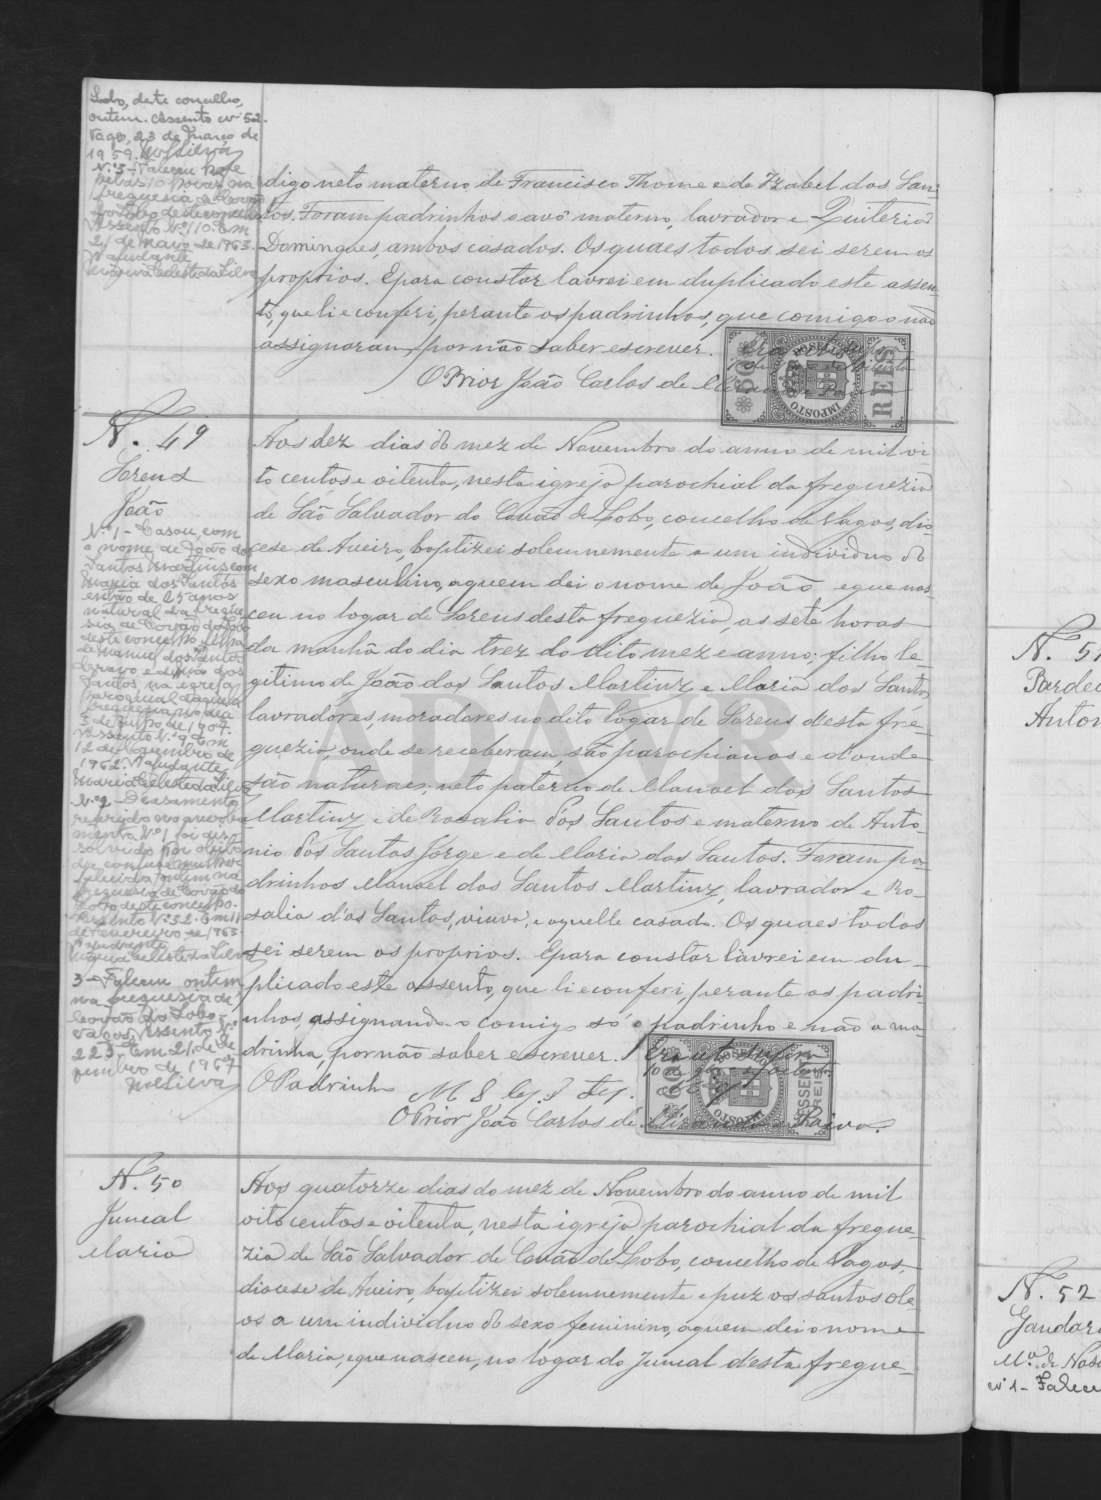 Lobo, deste concelho,
ontem. Assento nº 52.
Vagos, 23 de Março de
1959. MCSilva
Nº 3 - Faleceu hoje
pelas 10 horas na
freguesia de Covão
do Lobo deste concelho
Assento Nº 110. Em
21 de Maio de 1963.
A ajudante
Maria Celeste da Silva
digo neto materno de Francisco Thome e de Izabel dos San-
tos. Foram padrinhos o avô materno, lavrador e Quiteria
Domingues, ambos casados. Os quaes todos sei serem os
proprios. E para constar lavrei em duplicado este assen-
to, que li e conferi, perante os padrinhos, que comigo o não
assignaram por não saber escrever. Era ut supra
O Prior João Carlos de
60 IMPOSTO DO SELLO REIS
N. 49
Lorens
João
Nº 1 - Casou com
o nome de João dos
Santos Martins com
Maria dos Santos
então de 25 anos
natural da fregue-
sia de Covão do Lobo
deste concelho, filha
de Manuel dos Santos
Bravo e de
Santos, na egreja
paroquial daquela
freguesia no dia
5 de Julho de 1907.
Assento Nº 9. Em
12 de Novembro de
1962. A ajudante
Maria Celeste da Silva
Nº 2 - O casamento
referido no averba-
mento Nº 1 foi dis-
solvido por obito
do conjuge mulher
falecida ontem na
freguesia de Covão do
Lobo deste concelho.
Assento Nº 32. Em 11
de Fevereiro de 1963
A ajudante
Maria Celeste da Silva
3 - Faleceu ontem
na freguesia de
Covão do Lobo -
Vagos, Assento nº
223. Em 21 de De-
zembro de 1967
MCSilva
Aos dez dias do mez de Novembro do anno de mil oi-
to centos e oitenta, nesta igreja parochial da freguezia
de São Salvador do Covão do Lobo, concelho de Vagos, dio-
cese de Aveiro, baptizei solemnemente a um individuo do
sexo masculino, a quem dei o nome de João e que nas-
ceu no logar de Lorens desta freguezia, as sete horas
da manhã do dia trez do dito mez e anno; filho le-
gitimo de João dos Santos Martinz e Maria dos Santos,
lavradores, moradores no dito logar de Lorens d'esta fre-
guezia, onde se receberam, são parochianos e d'onde
são naturaes; neto paterno de Manoel dos Santos
Martinz e de Rosalia dos Santos e materno de Anto-
nio dos Santos Jorge e de Maria dos Santos. Foram pa-
drinhos Manoel dos Santos Martinz, lavrador e Ro-
salia d'os Santos, viuva, e aquelle casado. Os quaes todos
sei serem os proprios. E para constar lavrei em du-
plicado este assento, que li e conferi, perante os padri-
nhos, assignando-o comigo só o padrinho e não a ma-
drinha, por não saber escrever. Era ut supra
O Padrinho
O Prior João Carlos de Miranda Paiva.
60 IMPOSTO DO SELLO SESSENTA REIS
ADAVR
N. 50
Juncal
Maria
Aos quatorze dias do mez de Novembro do anno de mil
oito centos e oitenta, nesta igreja parochial da fregue-
zia de São Salvador de Covão do Lobo, concelho de Vagos,
diocese de Aveiro, baptizei solemnemente e puz os santos ole-
os a um individuo do sexo feminino, a quem dei o nome
de Maria, e que nasceu, no logar do Juncal d'esta fregue-
N. 51
Anton
N. 52
Gandara
Mª de
nº 1 - Falece